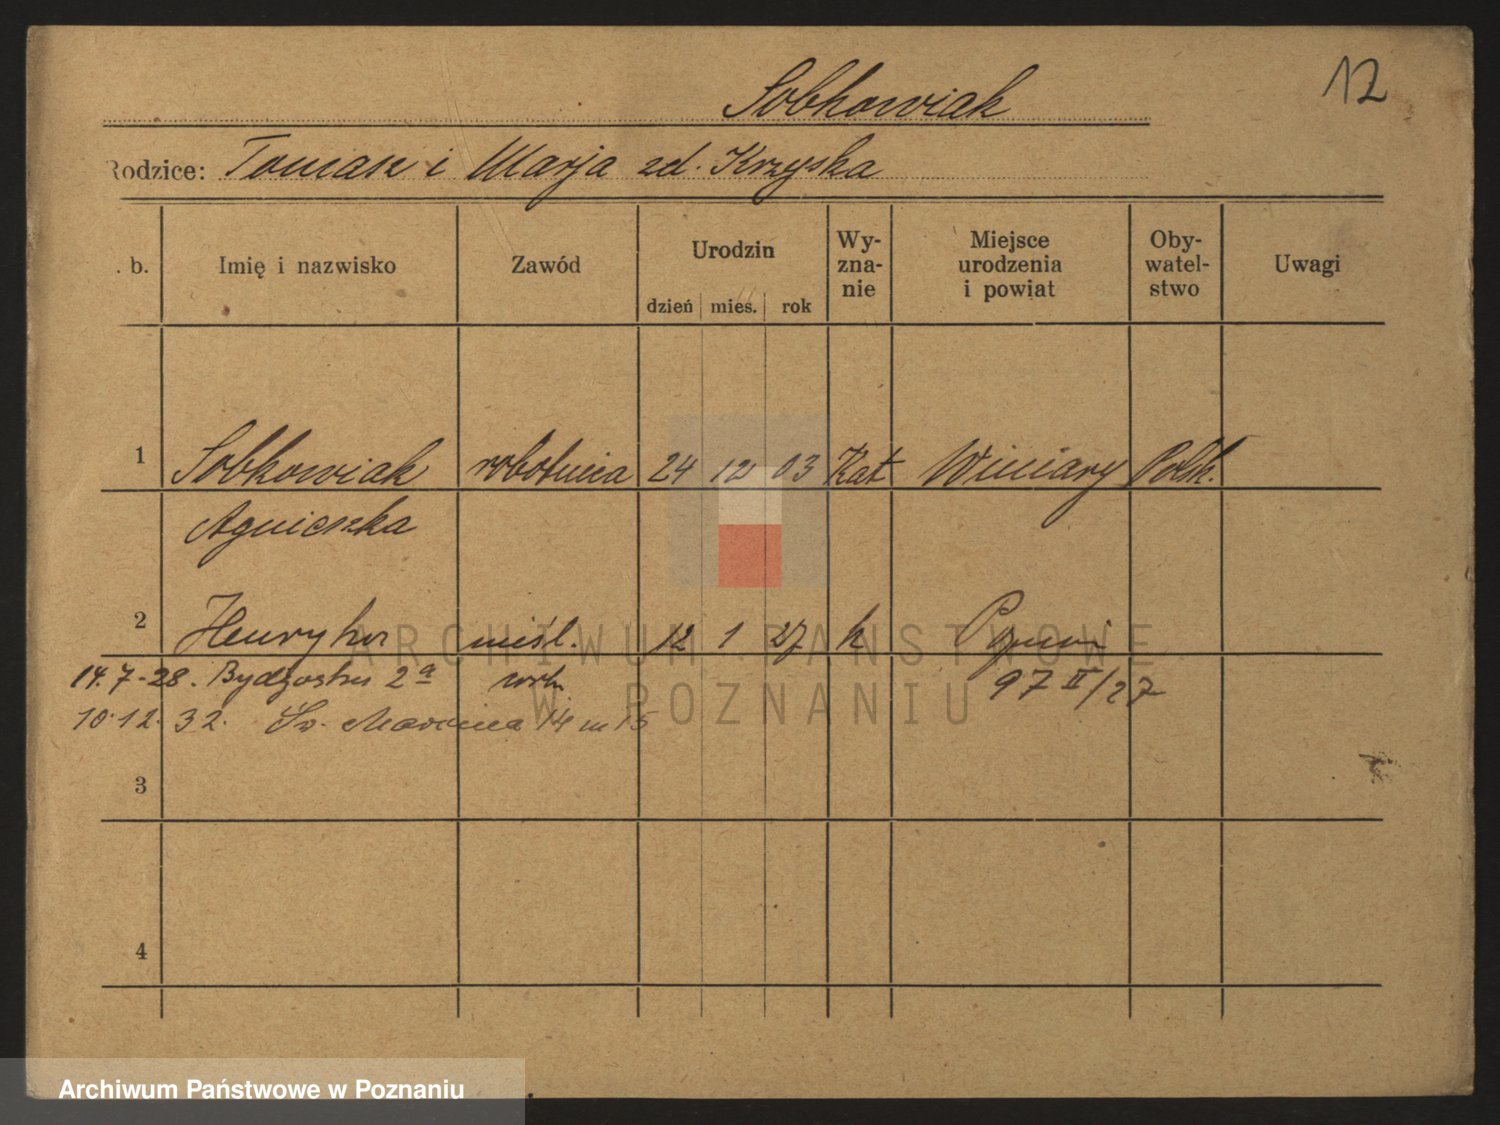 12
Sobkowiak
Rodzice: Tomasz i Marja zd. Krzyska
. b. Imię i nazwisko Zawód Urodzin dzień mies. rok Wy-zna-nie Miejsce urodzenia i powiat Oby-watel-stwo Uwagi
1 Sobkowiak robotnica 24 12 03 Kat Winiary Polsk.
Agnieszka
2 Henryka nieśl. 12 1 27 k Poznań
14.7-28. Bydgoska 2a 97 II/27
10.12.32. Św. Marcina 14 m 15
3
4
ARCHIWUM PAŃSTWOWE
W POZNANIU
Archiwum Państwowe w Poznaniu